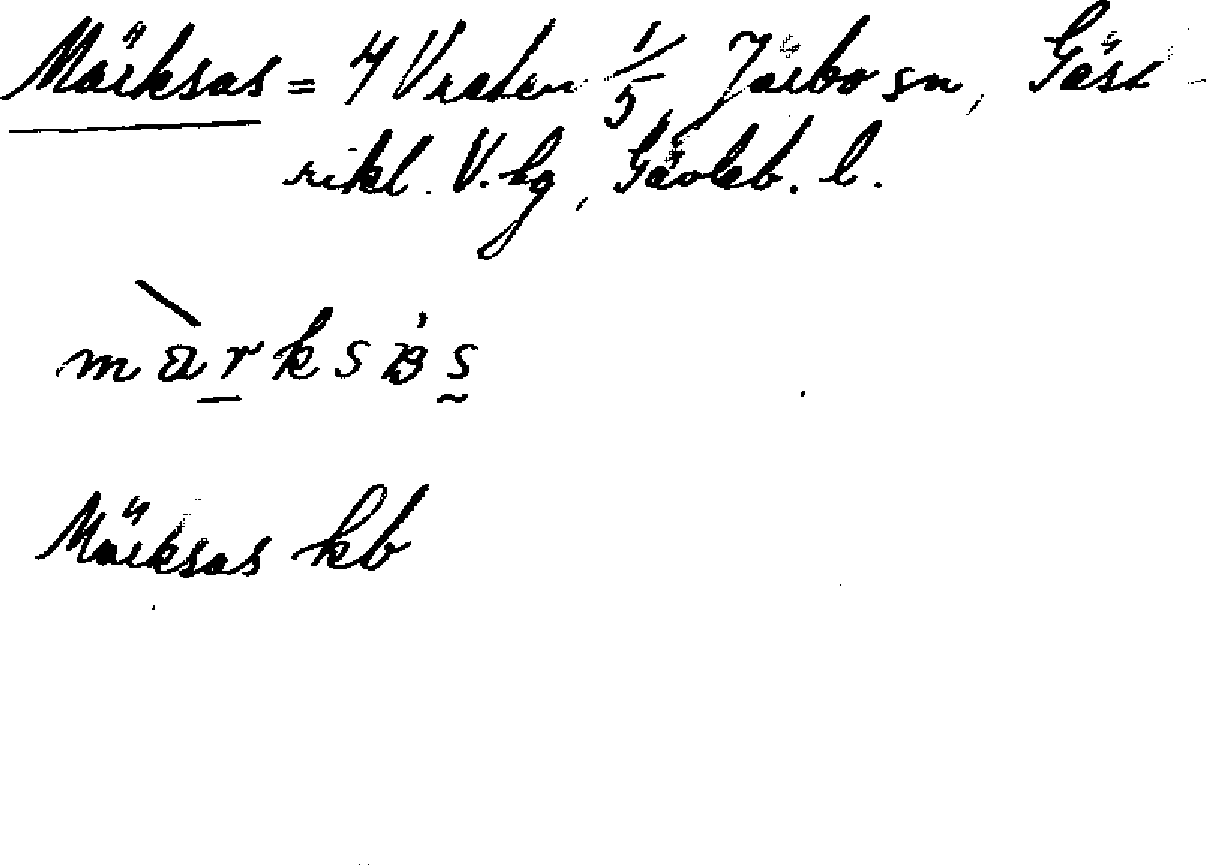 Märksas = 4 Vreten 1/5, Järbo sn, Gäst-
rikl. V. hg, Gävleb. l.
Märksas kb